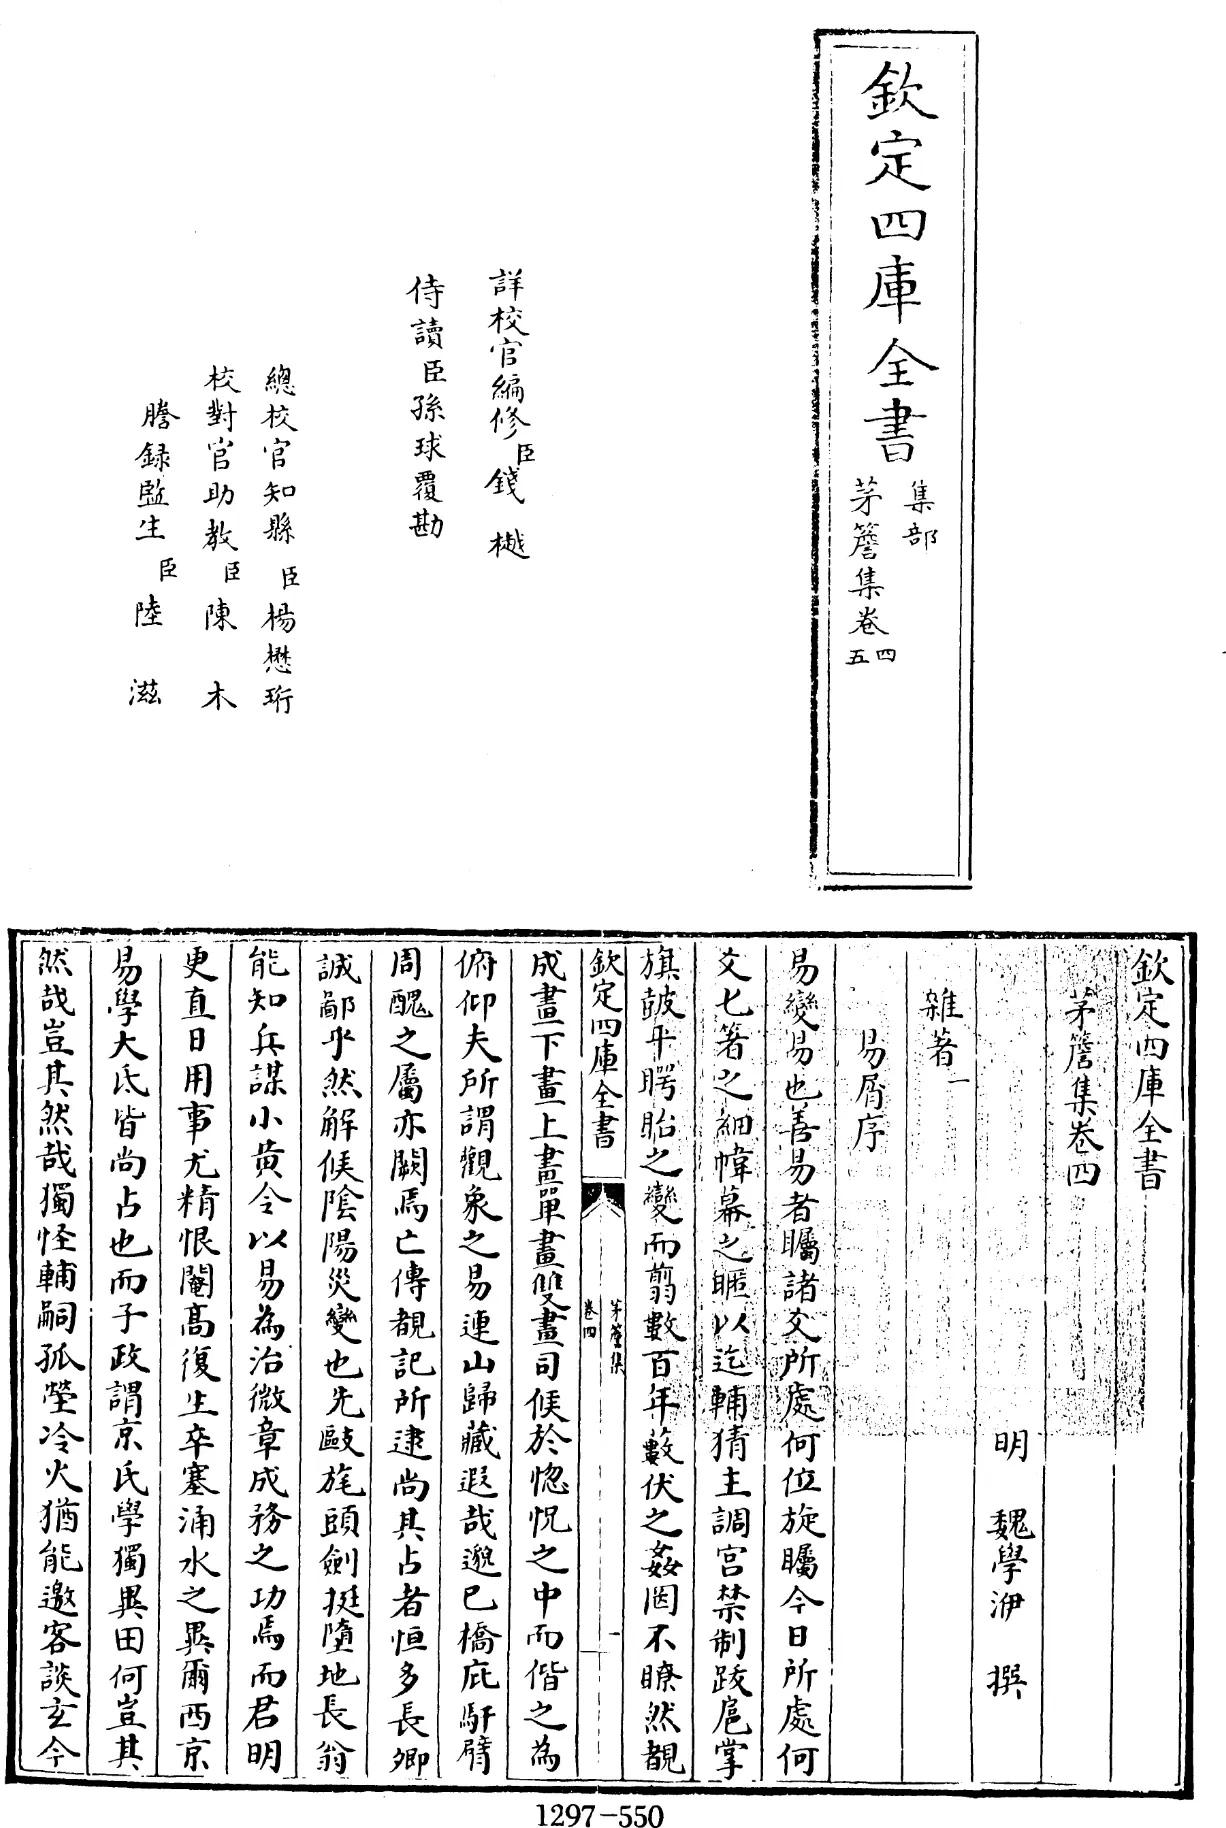 欽定四庫全書
集部
茅簷集卷四五
詳校官編修臣錢樾
侍讀臣孫球覆勘
總校官知縣臣楊懋珩
校對官助教臣陳木
謄録監生臣陸滋
欽定四庫全書
茅簷集卷四
明 魏學洢 撰
雜著一
易屑序
易變易也善易者矚諸爻所處何位旋矚今日所處何
爻七箸之細幃幕之暱以迄輔猜主調宫禁制跋扈掌
旗鼓斗睯眙之變而翦數百年藪伏之姦罔不瞭然覩
欽定四庫全書
茅簷集
卷四
一
成畫下畫上畫單畫雙畫司候於惚怳之中而偕之為
俯仰夫所謂觀象之易連山歸藏遐哉邈已橋庇馯臂
周醜之屬亦闕焉亡傳覩記所逮尚其占者恒多長卿
誠鄙乎然解候陰陽災變也先敺旄頭劍挺墮地長翁
能知兵謀小黄令以易為治微章成務之功焉而君明
更直日用事尤精恨閹髙復生卒塞涌水之異爾西京
易學大氐皆尚占也而子政謂京氏學獨異田何豈其
然哉豈其然哉獨怪輔嗣孤瑩冷火猶能邀客談玄今
1297-550